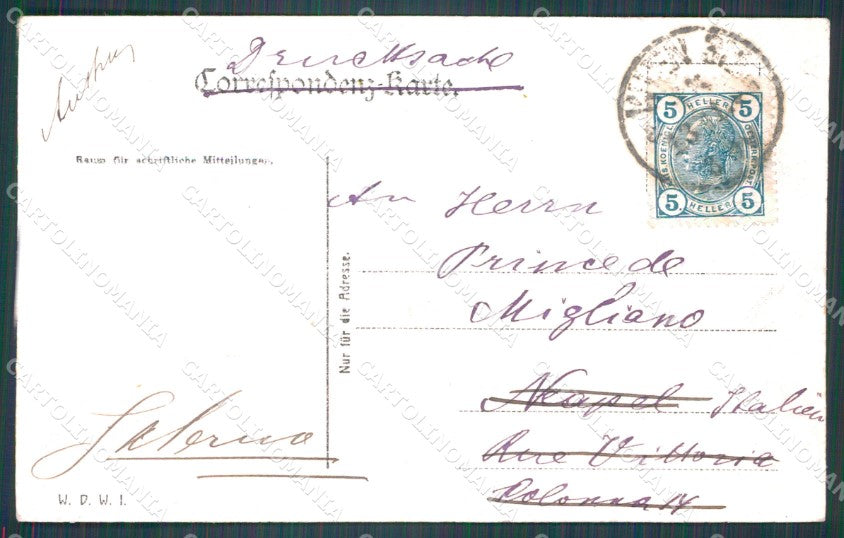 Drucksache
Correspondenz-Karte.
Raum für schriftliche Mitteilungen.
5 HELLER 5
5 HELLER 5
An Herrn
Prince de
Migliano
Neapel Italien
Rue Vittoria
Colonna 14
Nur für die Adresse.
Salerno
W. D. W. I.
CARTOLINOMANIA